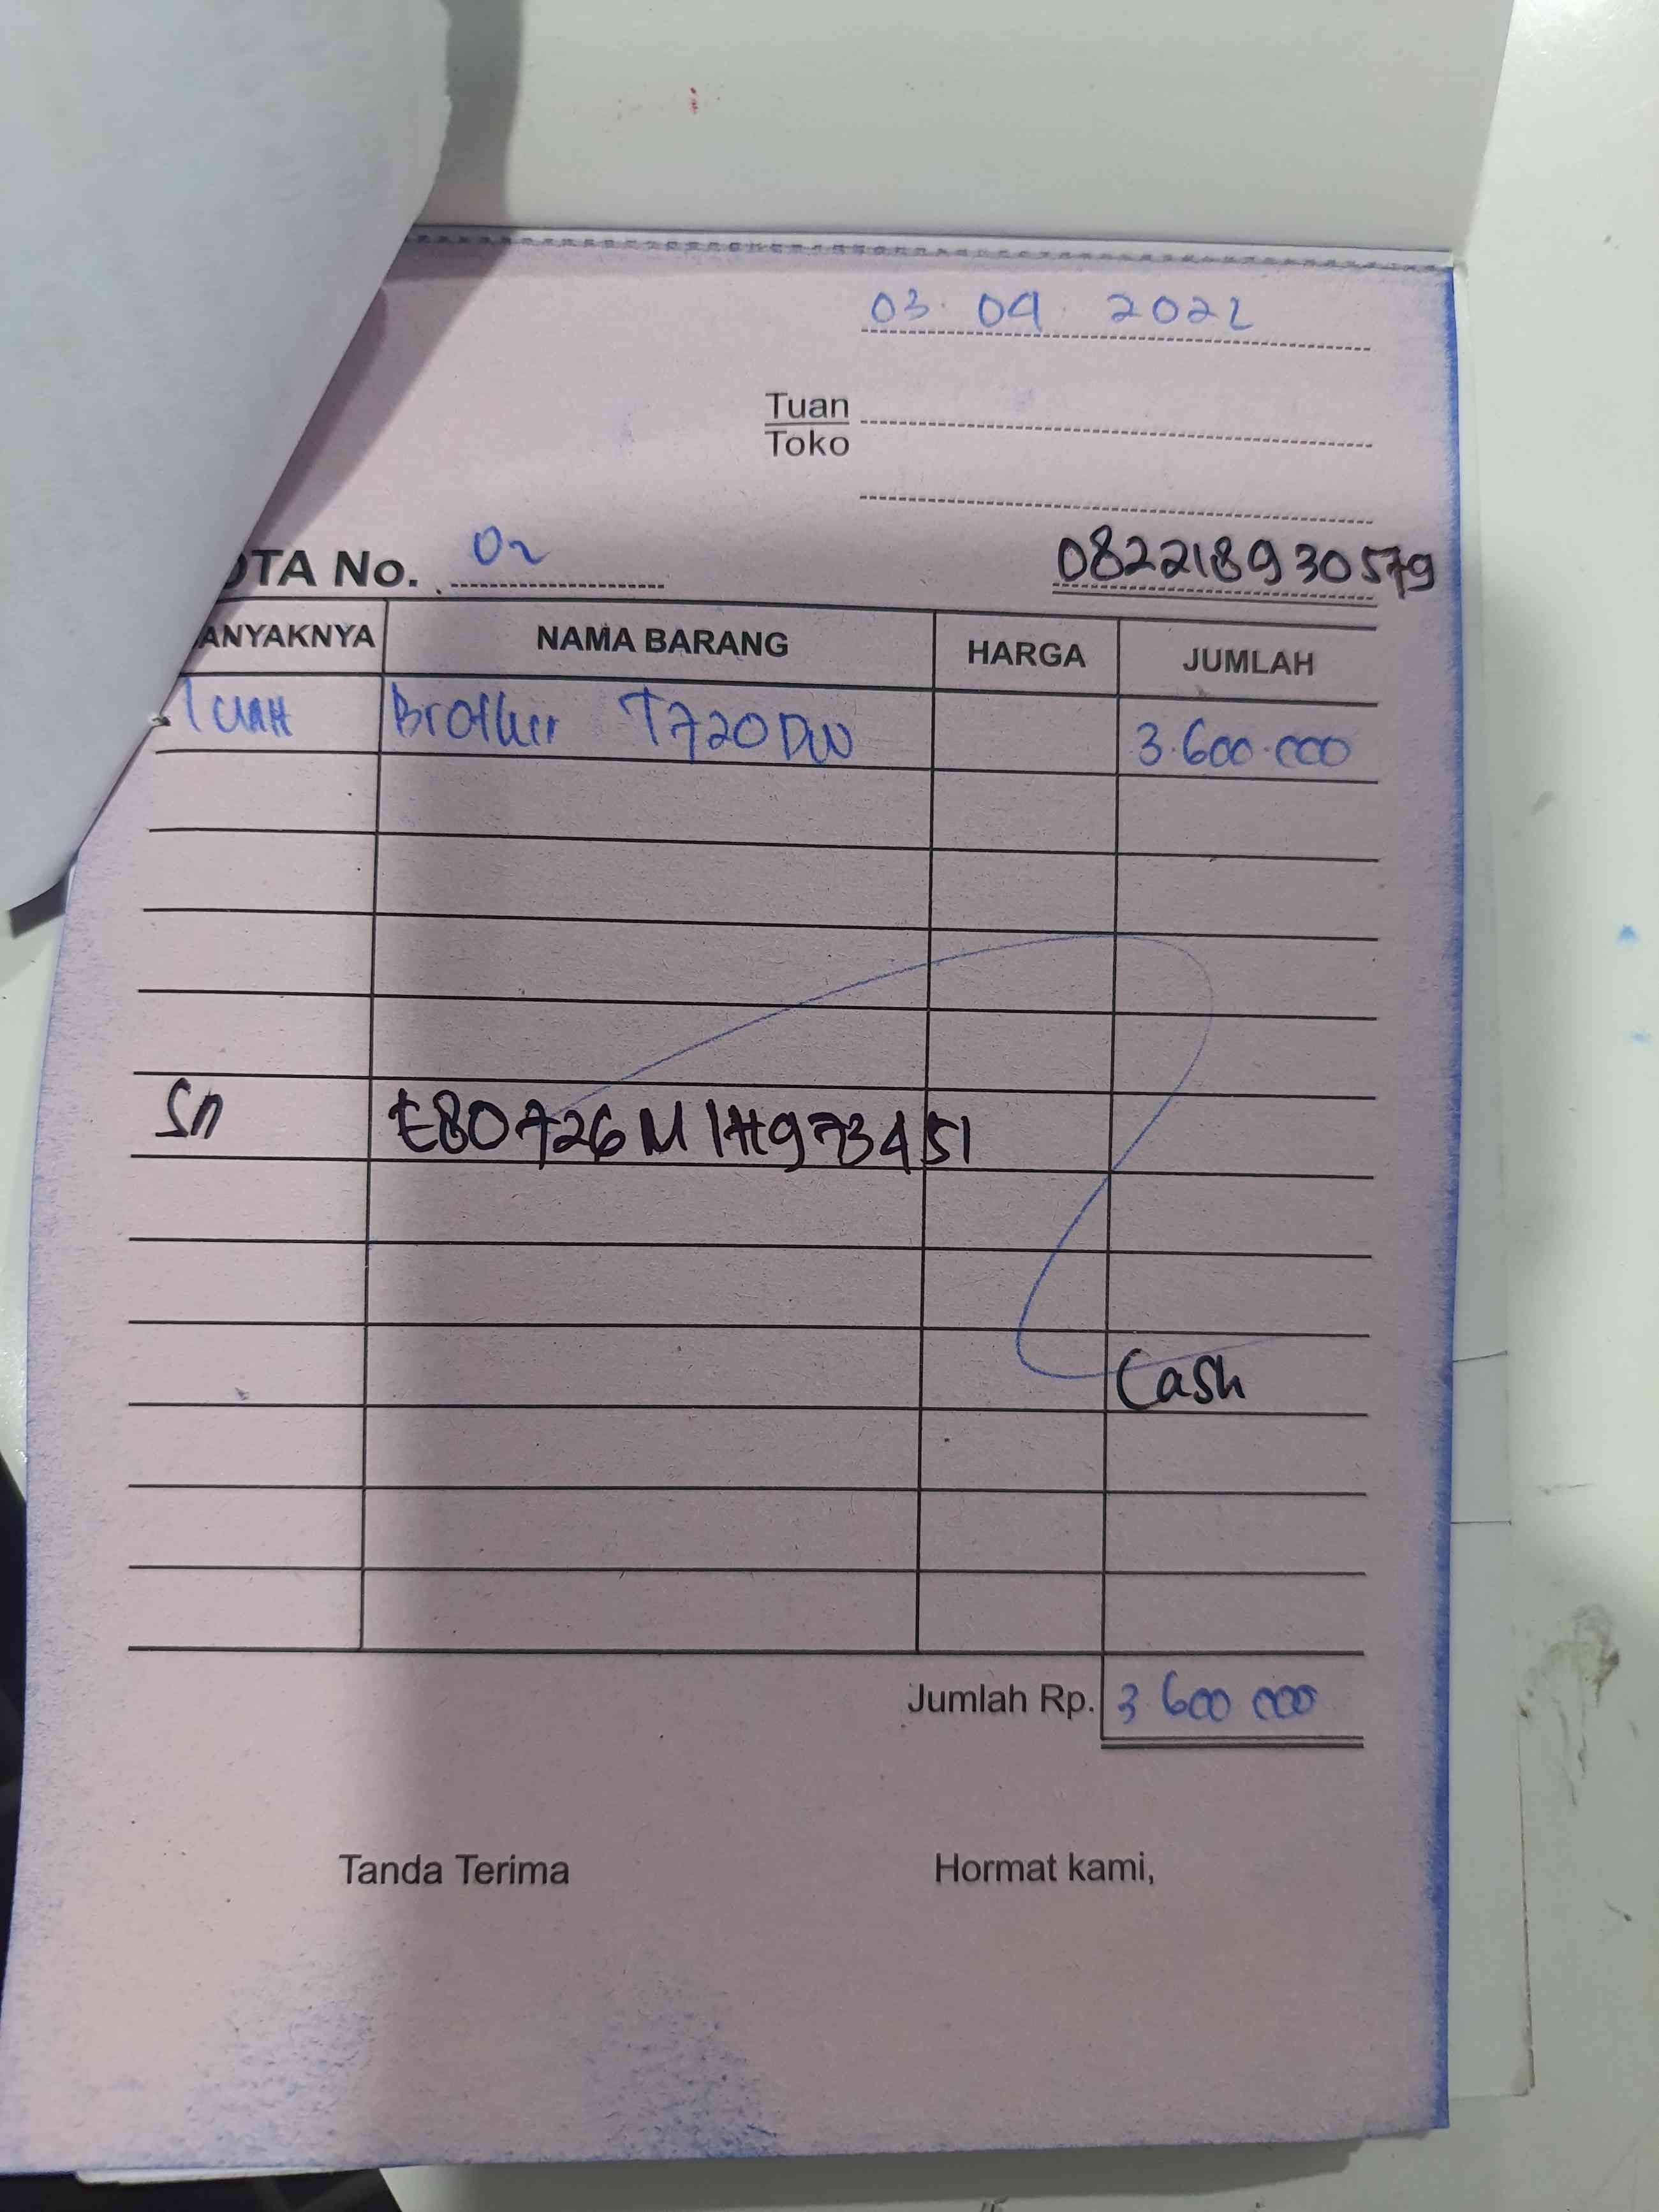 03. 09. 2022
Tuan
Toko
OTA No. 02
082218930579
ANYAKNYA NAMA BARANG HARGA JUMLAH
1 Brother T720DW 3.600.000
Sn E80726M1H973451
Cash
Jumlah Rp. 3.600 000
Tanda Terima Hormat kami,